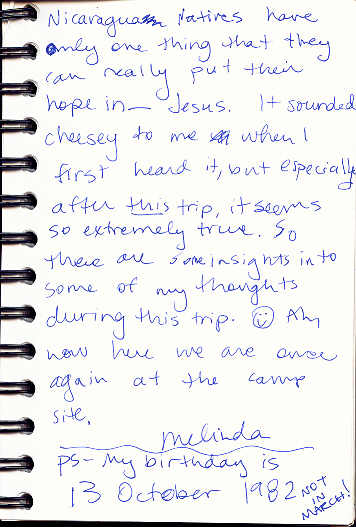 Nicaraguan Natives have
only one thing that they
can really put their
hope in— Jesus. It sounded
cheesey to me when I
first heard it, but especially
after this trip, it seems
so extremely true. So
there are some insights into
some of my thoughts
during this trip. ☺ Ah,
now here we are once
again at the camp
site.
Melinda
PS- My birthday is
13 October 1982 NOT IN MARCH!